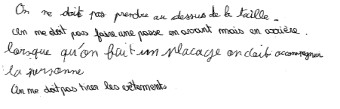 On ne doit pas prendre au dessus de la taille.
On ne doit pas faire une passe en avant mais en arrière.
lorsque qu'on fait un placage on doit accompagner
la personne
On ne doit pas tirer les vêtements